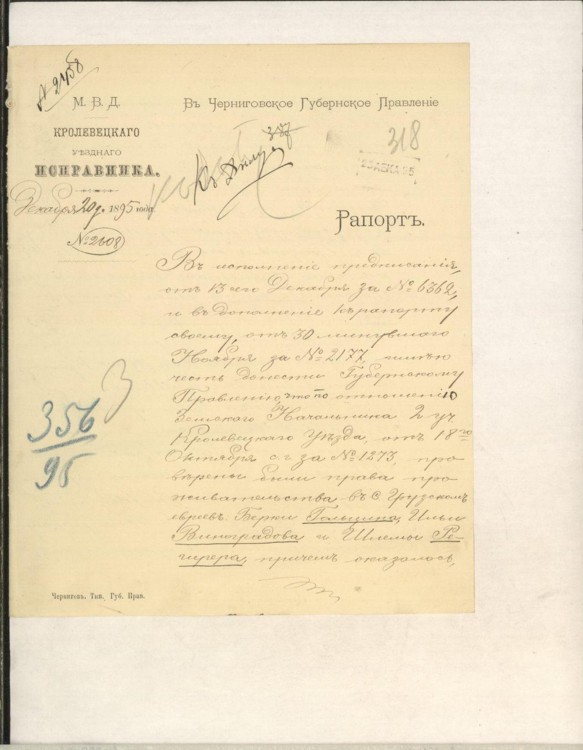 № 2458
М. В. Д.
КРОЛЕВЕЦКАГО
УѢЗДНАГО
ИСПРАВНИКА.
Декабря 20 д. 1895 года
№ 2608
Въ Черниговское Губернское Правленіе
318
Рапортъ.
Въ исполненіе предписанія,
отъ 13-го Декабря за № 6362,
и въ дополненіе къ рапорту
своему, отъ 30 минувшаго
Ноября за № 2177, имѣю
честь донести Губернскому
Правленію, что по отношенію
Земскаго Начальника 2 уч
Кролевецкаго Уѣзда, отъ 18го
Октября с.г. за № 1273, про
вѣрены были права про
живательства въ с. Грузскомъ
евреевъ: Берки Гольцина, Ильи
Виноградова и Шлемы Ре-
гирера, причемъ оказалось,
356
95
Черниговъ. Тип. Губ. Прав.